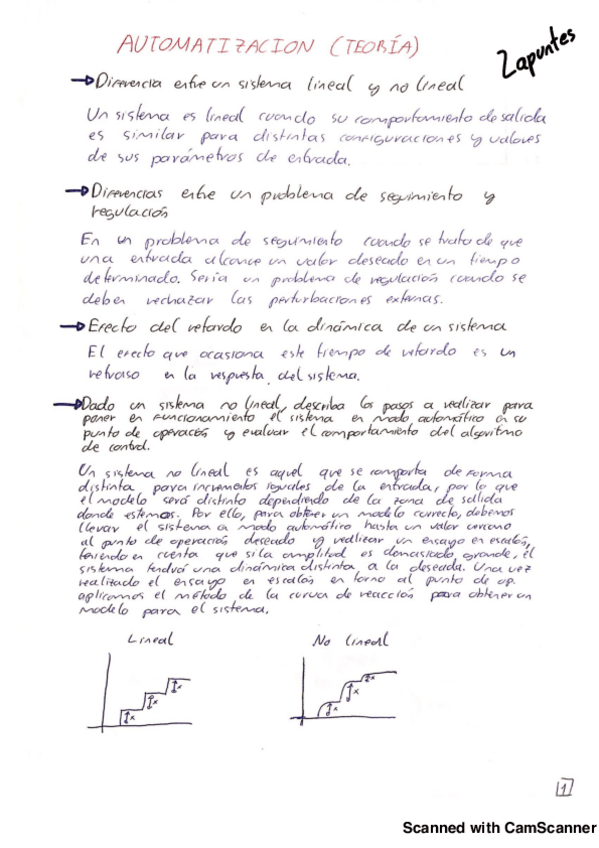 AUTOMATIZACION (TEORÍA)
Zapuntes
Diferencia entre un sistema lineal y no lineal
Un sistema es lineal cuando su comportamiento de salida
es similar para distintas configuraciones y valores
de sus parámetros de entrada.
Diferencias entre un problema de seguimiento y
regulación
En un problema de seguimiento cuando se trata de que
una entrada alcance un valor deseado en un tiempo
determinado. Sería un problema de regulación cuando se
deben rechazar las perturbaciones externas.
Efecto del retardo en la dinámica de un sistema
El efecto que ocasiona este tiempo de retardo es un
retraso en la respuesta del sistema.
Dado un sistema no lineal, describa los pasos a realizar para
poner en funcionamiento el sistema en modo automático en su
punto de operación y evaluar el comportamiento del algoritmo
de control.
Un sistema no lineal es aquel que se comporta de forma
distinta para incrementos iguales de la entrada, por lo que
el modelo será distinto dependiendo de la zona de salida
donde estemos. Por ello, para obtener un modelo correcto, debemos
llevar el sistema a modo automático hasta un valor cercano
al punto de operación deseado y realizar un ensayo en escalón,
teniendo en cuenta que si la amplitud es demasiado grande, el
sistema tendrá una dinámica distinta a la deseada. Una vez
realizado el ensayo en escalón en torno al punto de op.
aplicamos el método de la curva de reacción para obtener un
modelo para el sistema.
Lineal
No lineal
x x x
x x x
1
Scanned with CamScanner